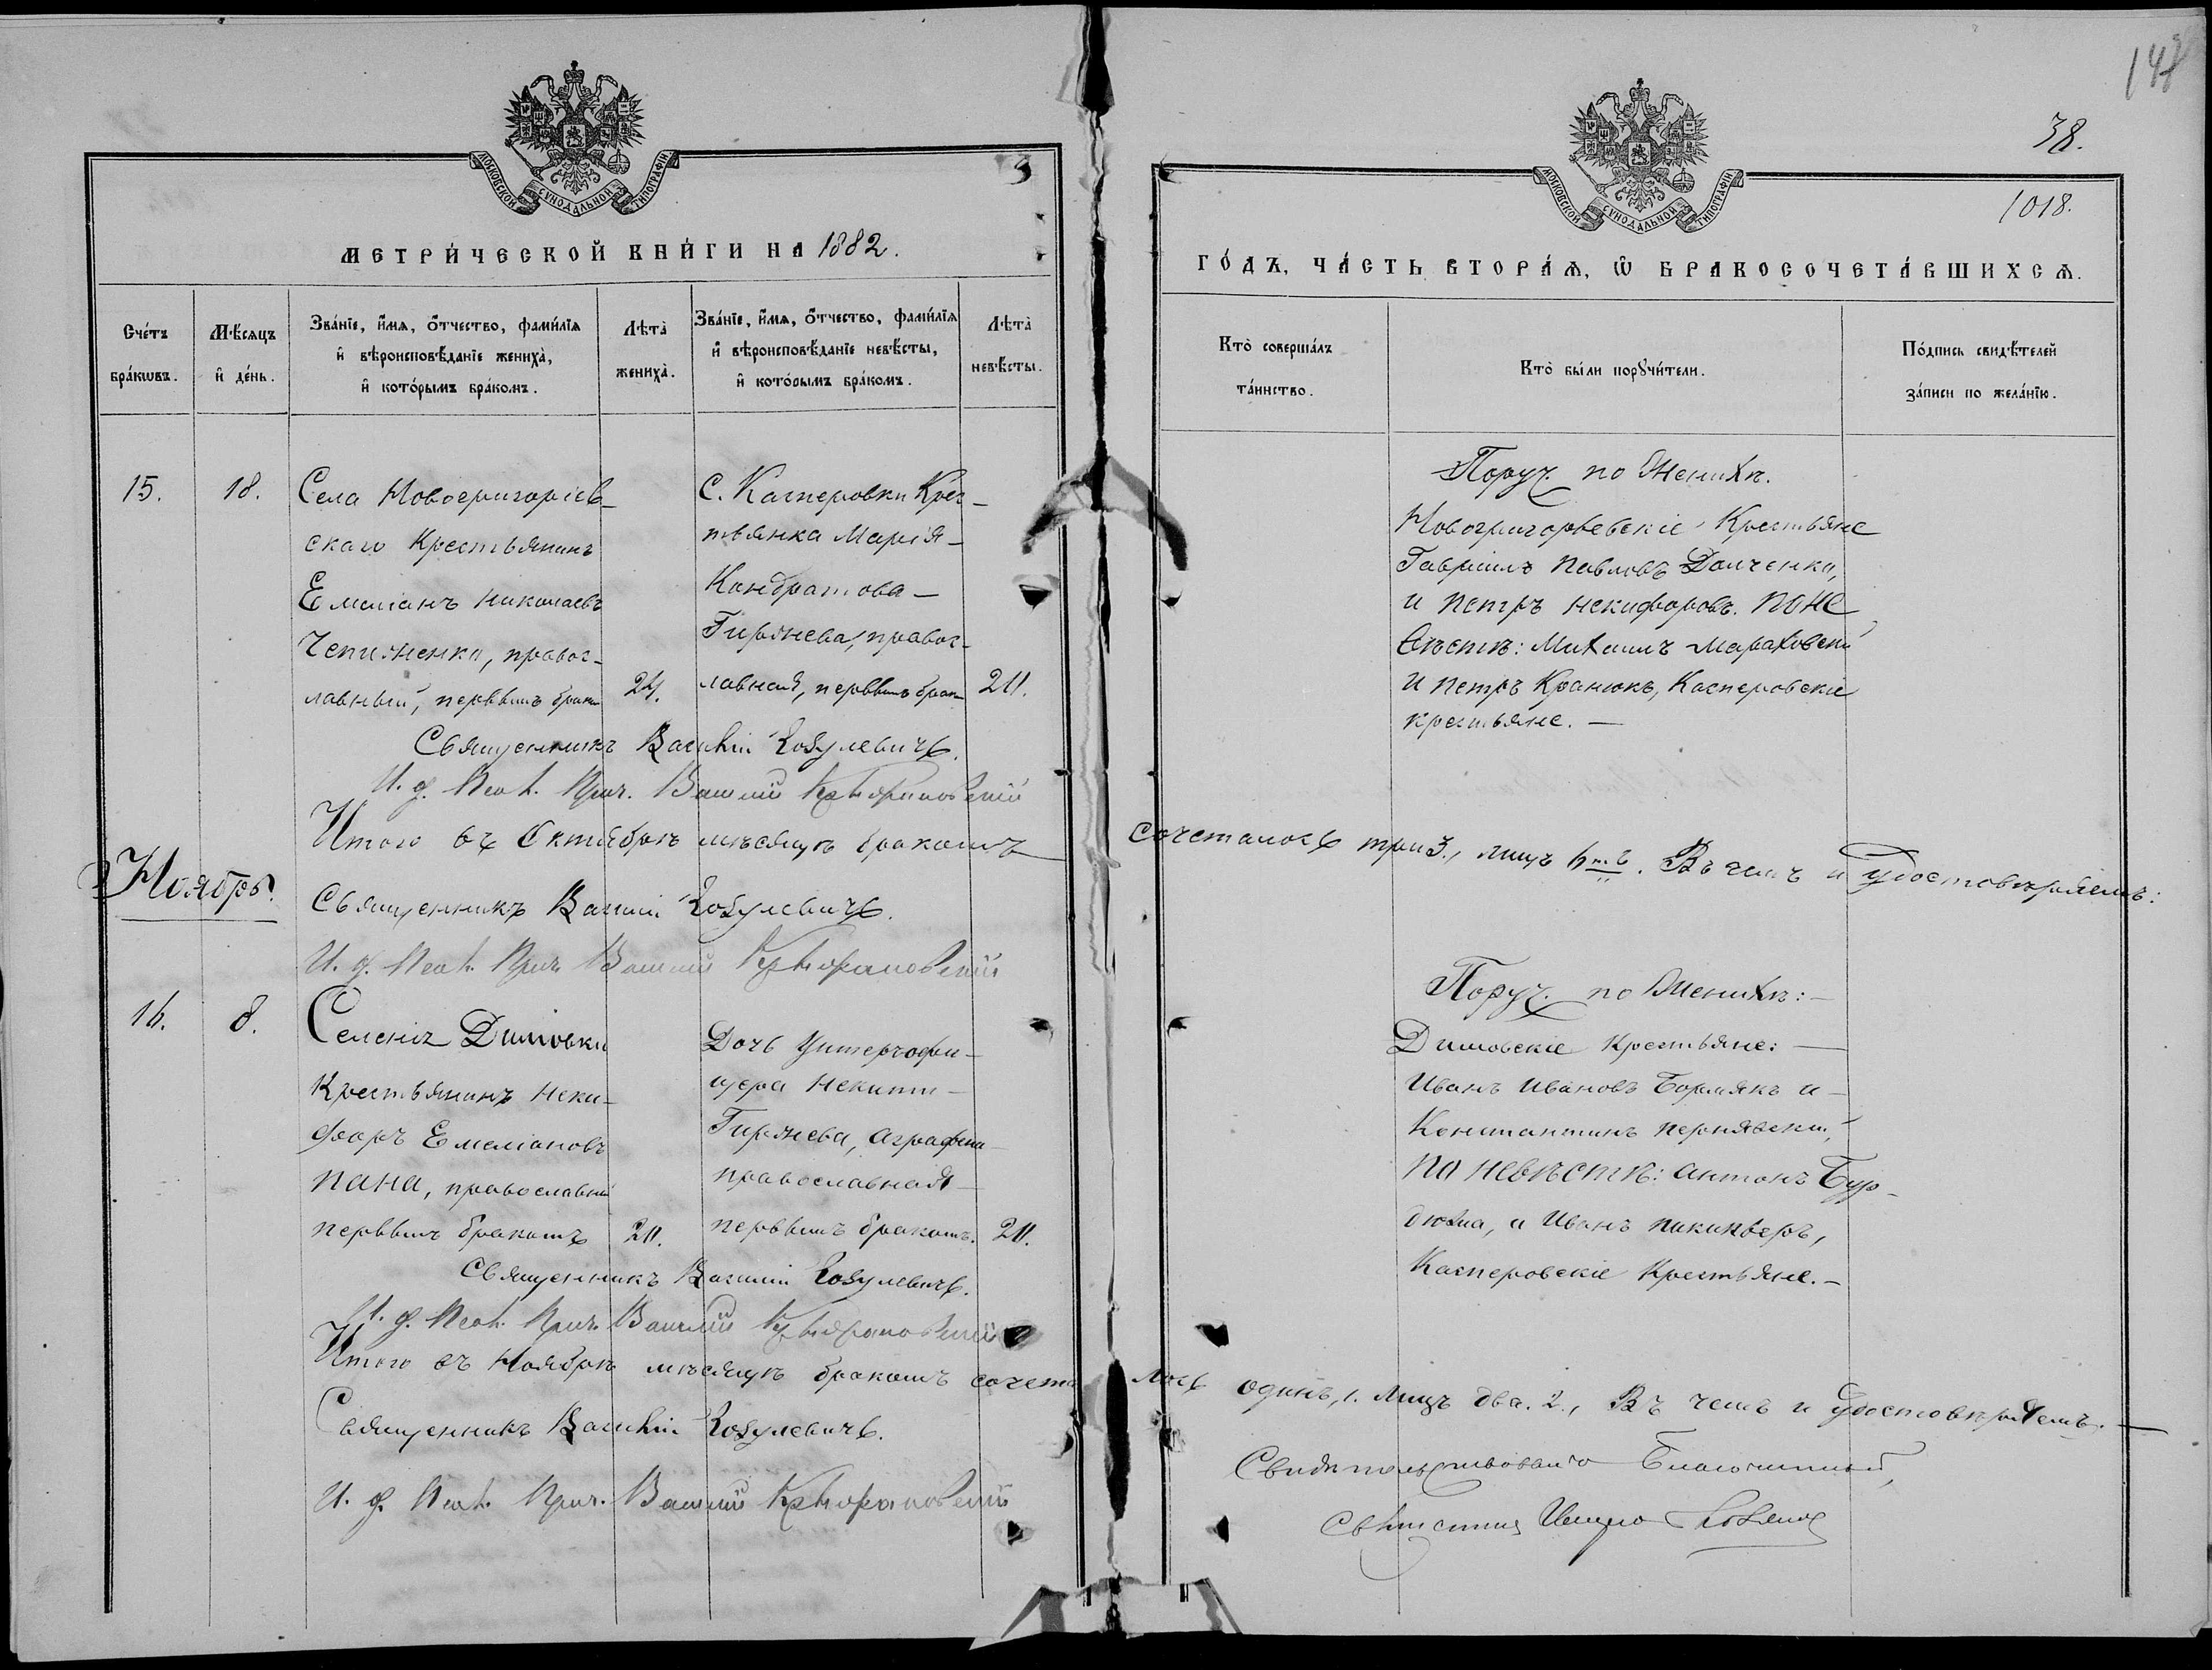 148
38.
1018.
МОСКОВСКОЙ СѴНОДАЛЬНОЙ ТИПОГРАФІИ
МЕТРИ́ЧЕСКОЙ КНИ́ГИ НА 1882.
Сче́тъ бра́кωвъ.
Мѣ́сяцъ и҆ де́нь.
Зва́нїе, и҆́мѧ, ѻ҆́тчество, фами́лїѧ
и҆ вѣроисповѣ́данїе жениха̀,
и҆ кото́рымъ бра́комъ.
Лѣта̀ жениха̀.
Зва́нїе, и҆́мѧ, ѻ҆́тчество, фами́лїѧ
и҆ вѣроисповѣ́данїе невѣ́сты,
и҆ кото́рымъ бра́комъ.
Лѣта̀ невѣ́сты.
15.
18.
Села Новогригоріев-
скаго Крестьянинъ
Емеліанъ Николаевъ
правос-
лавный, первымъ брак
24.
С. Касперовки Крес-
тьянка Марія
Кондратова
Гиржева, правос-
лавная, первымъ брак
211.
Священникъ Василій Козулевичъ.
И. д. Псал. Прич. Василій
Итого въ Октябрѣ мѣсяцѣ бракомъ
Ноябрь.
Священникъ Василій Козулевичъ.
И. д. Псал. Прич. Василій
16.
8.
Селенія Димовки
Крестьянинъ Неки-
форъ Емеліановъ
Пана, православный
первымъ бракомъ
211.
Дочь Унтерофи-
цера Некиты
Гиржева, Аграфена
православная
первымъ бракомъ.
211.
Священникъ Василій Козулевичъ.
И. д. Псал. Прич. Василій
Итого въ Ноябрѣ мѣсяцѣ бракомъ сочета
Священникъ Василій Козулевичъ.
И. д. Псал. Прич. Василій
МОСКОВСКОЙ СѴНОДАЛЬНОЙ ТИПОГРАФІИ
ГО́ДЪ, ЧА́СТЬ ВТОРА́Ѧ, Ѽ БРАКОСОЧЕТА́ВШИХСѦ.
Кто̀ соверша́лъ та́инство.
Кто̀ бы́ли порꙋчи́тели.
По́дпись свидѣ́телей
за́писи по жела́нїю.
Поруч. по Женихѣ.
Новогригорьевскіе Крестьяне
Гавріилъ Павловъ Данченко,
и Петръ Некифоровъ. По не
вѣстѣ: Михаилъ Мараховскій
и Петръ Кранюкъ, Касперовскіе
крестьяне. —
сочеталось три 3., лицъ 6ть. Въ чемъ и удостовѣряемъ:
Поруч. по Женихѣ: —
Димовскіе Крестьяне: —
Иванъ Ивановъ Бормякъ и —
Константинъ
По невѣстѣ: Антонъ Бур-
и Иванъ
Касперовскіе Крестьяне. —
лось одинъ, 1. лицъ два. 2., Въ чемъ и удостовѣряемъ. —
Свидѣтельствовалъ Благочинный,
Священникъ